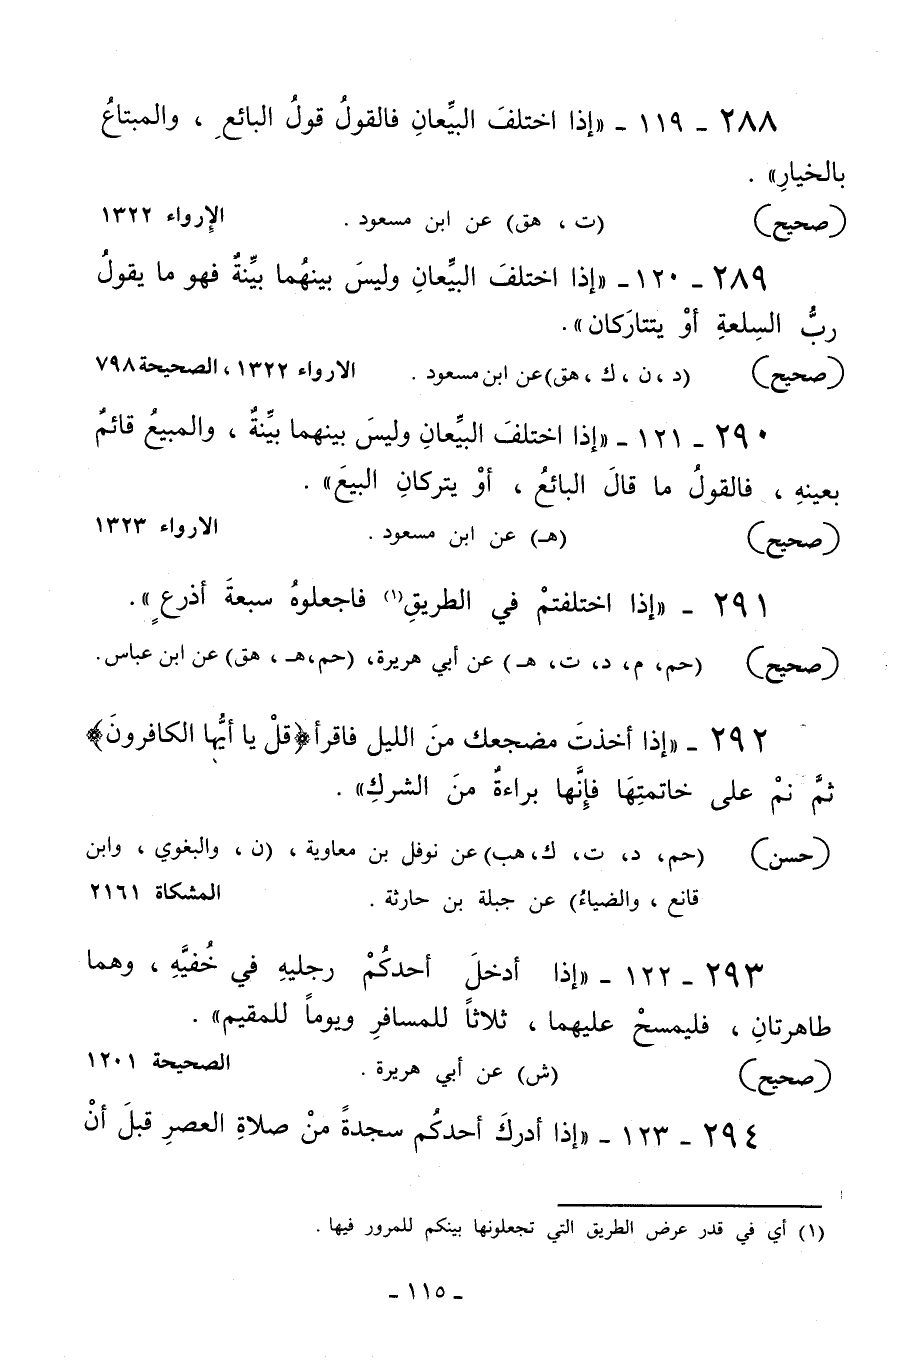 ٢٨٨ ـ ١١٩ ـ «إذا اختلفَ البيِّعانِ فالقولُ قولُ البائعِ ، والمبتاعُ
بالخيارِ» .
(صحيح) (ت ، هق) عن ابن مسعود . الإرواء ١٣٢٢
٢٨٩ ـ ١٢٠ ـ «إذا اختلفَ البيِّعانِ وليسَ بينهُما بيِّنةٌ فهو ما يقولُ
ربُّ السِلعةِ أوْ يتتارَكان» .
(صحيح) (د ، ن ، ك ، هق) عن ابن مسعود . الارواء ١٣٢٢ ، الصحيحة ٧٩٨
٢٩٠ ـ ١٢١ ـ «إذا اختلفَ البيِّعانِ وليسَ بينهما بيِّنةٌ ، والمبيعُ قائمٌ
بعينهِ ، فالقولُ ما قالَ البائعُ ، أوْ يتركانِ البيعَ» .
(صحيح) (هـ) عن ابن مسعود . الارواء ١٣٢٣
٢٩١ ـ «إذا اختلفتمْ في الطريقِ(١) فاجعلوهُ سبعةَ أذرعٍ» .
(صحيح) (حم، م، د، ت، هـ) عن أبي هريرة، (حم،هـ ، هق) عن ابن عباس .
٢٩٢ ـ «إذا أخذتَ مضجعك منَ الليل فاقرأ ﴿قلْ يا أيُّها الكافرونَ﴾
ثمَّ نمْ على خاتمتِهَا فإنَّها براءةٌ منَ الشركِ» .
(حسن) (حم، د، ت، ك، هب) عن نوفل بن معاوية ، (ن ، والبغوي ، وابن
قانع ، والضياءُ) عن جبلة بن حارثة . المشكاة ٢١٦١
٢٩٣ ـ ١٢٢ ـ «إذا أدخلَ أحدكُمْ رجليهِ في خُفيَّهِ ، وهما
طاهرتانِ ، فليمسحْ عليهما ، ثلاثاً للمسافرِ ويوماً للمقيم» .
(صحيح) (ش) عن أبي هريرة . الصحيحة ١٢٠١
٢٩٤ ـ ١٢٣ ـ «إذا أدركَ أحدكُم سجدةً منْ صلاةِ العصرِ قبلَ أنْ
(١) أي في قدر عرض الطريق التي تجعلونها بينكم للمرور فيها .
ـ ١١٥ ـ